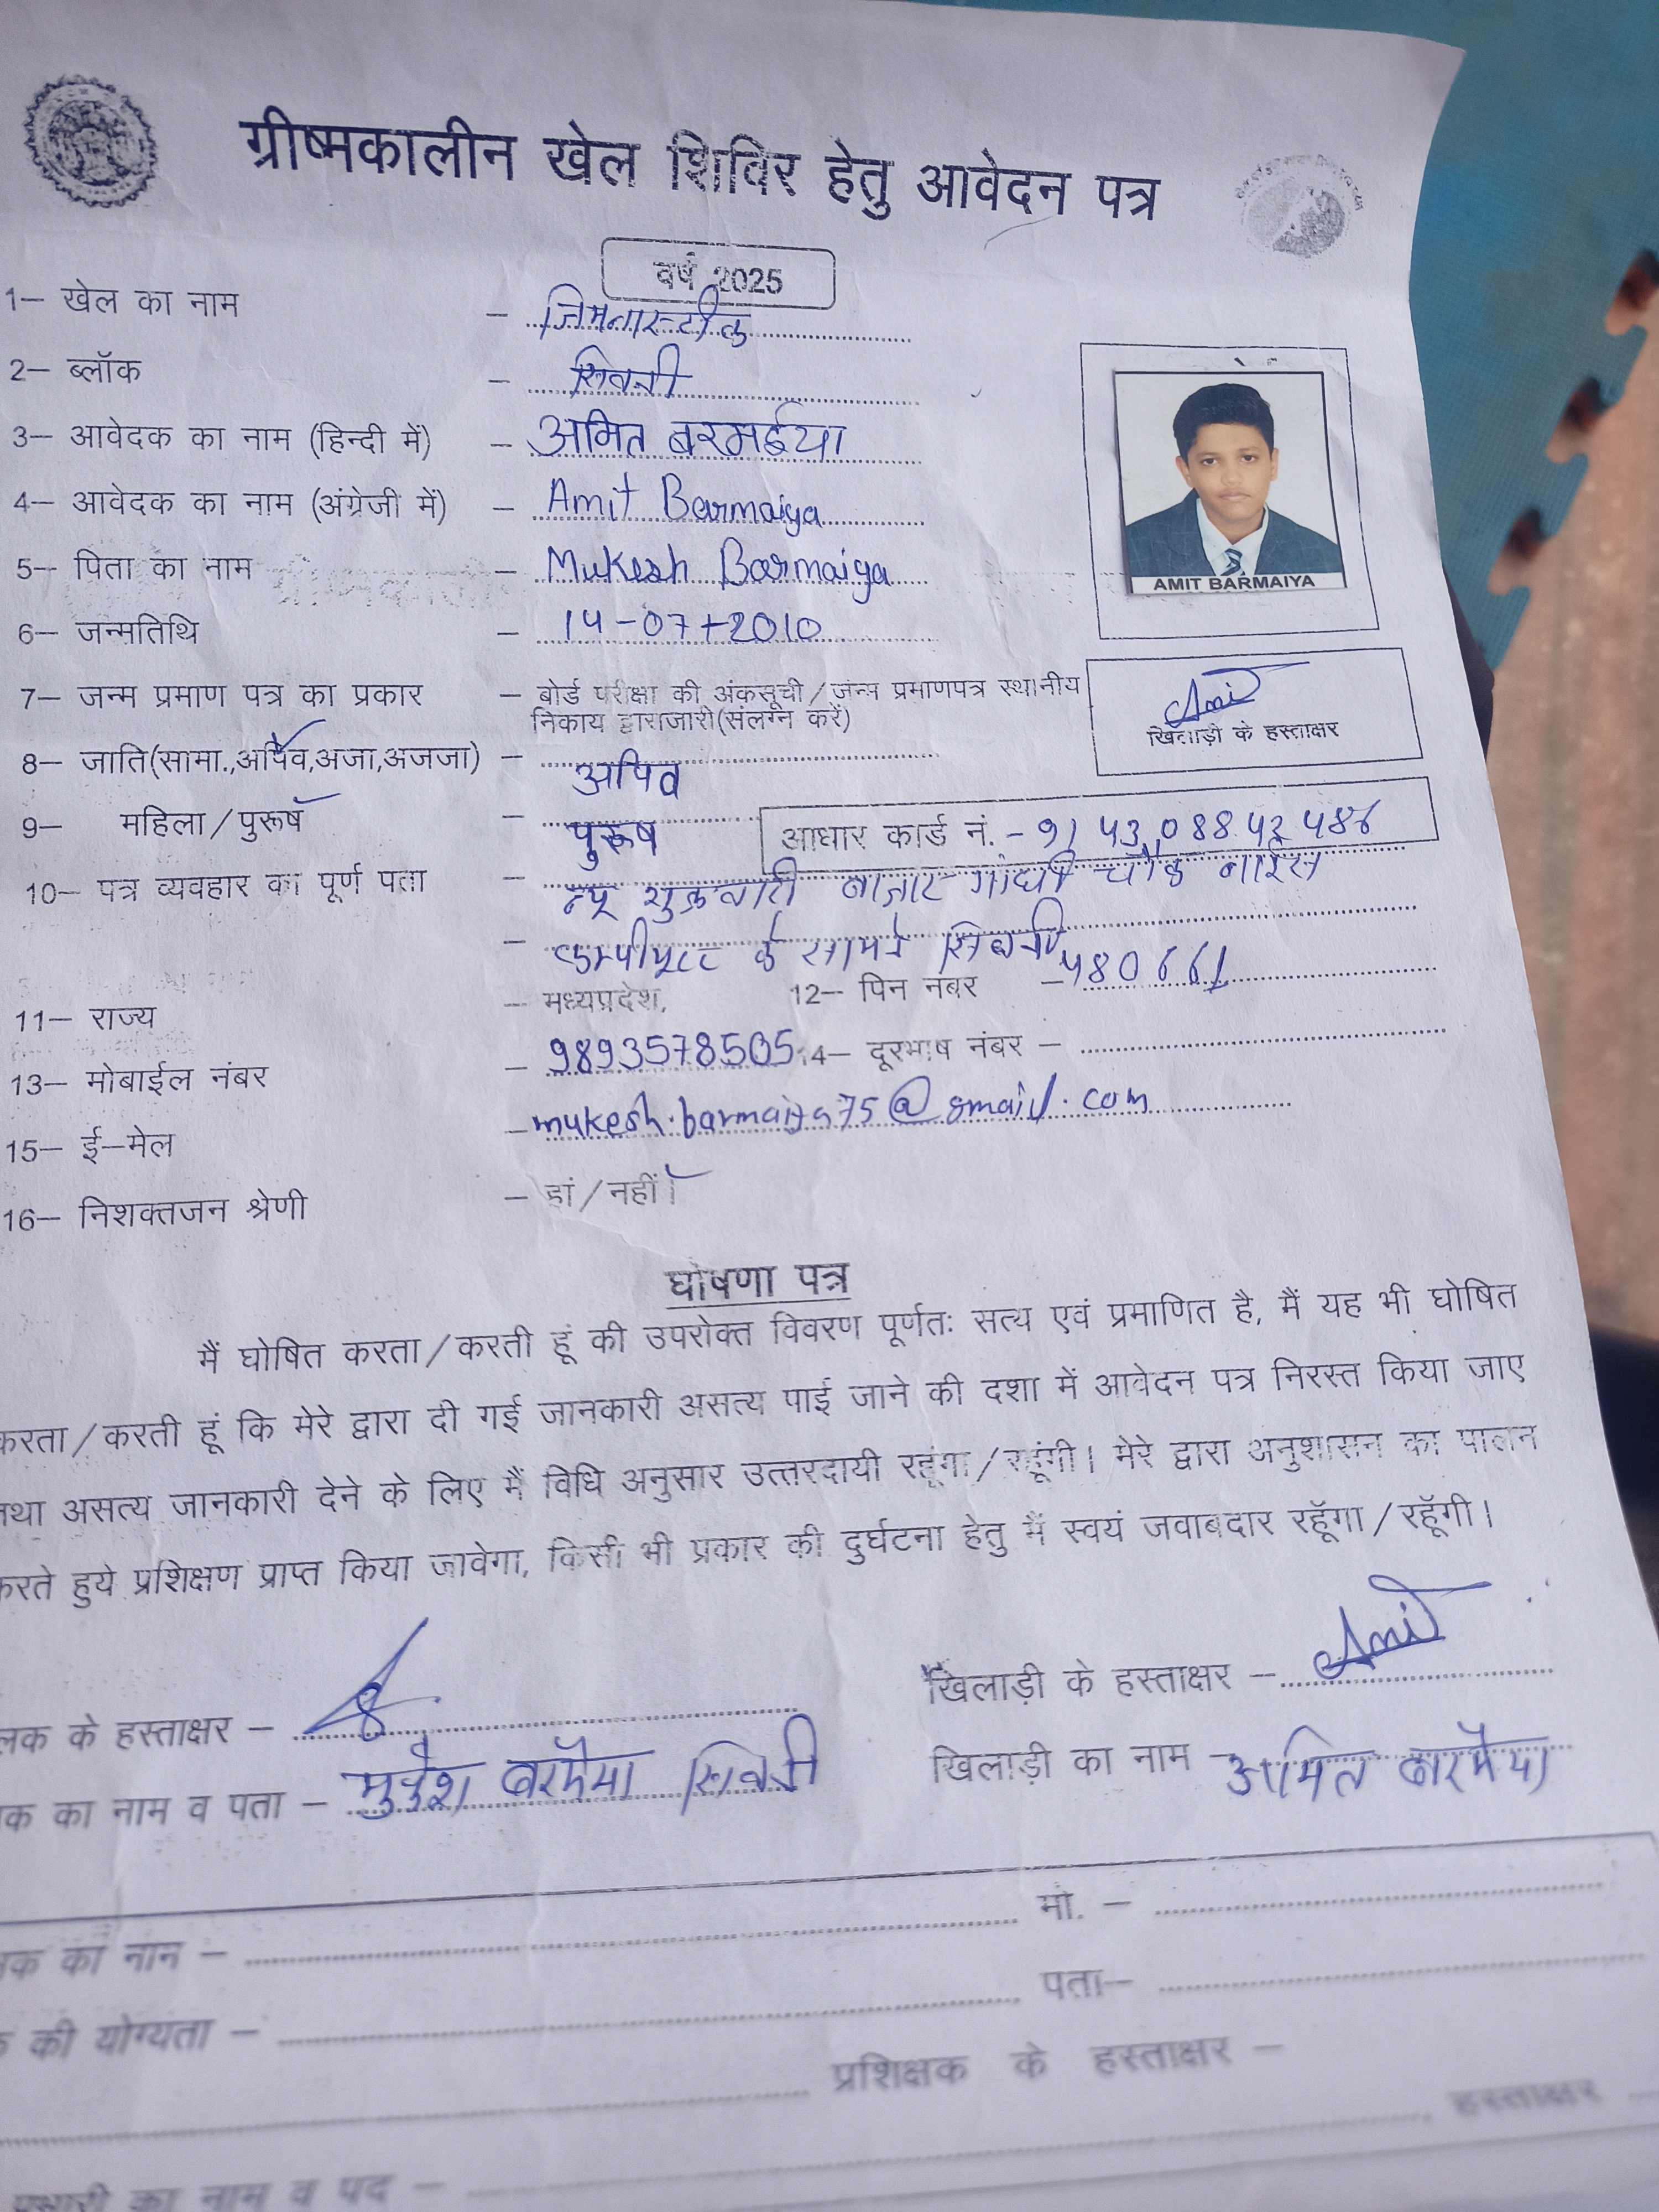 ग्रीष्मकालीन खेल शिविर हेतु आवेदन पत्र
वर्ष 2025
1– खेल का नाम – जिमनास्टीक
2– ब्लॉक – सिवनी
3– आवेदक का नाम (हिन्दी में) – अमित बरमईया
4– आवेदक का नाम (अंग्रेजी में) – Amit Barmaiya
5– पिता का नाम – Mukesh Barmaiya
AMIT BARMAIYA
6– जन्मतिथि – 14-07-2010
7– जन्म प्रमाण पत्र का प्रकार – बोर्ड परीक्षा की अंकसूची/जन्म प्रमाणपत्र स्थानीय
निकाय द्वाराजारी(संलग्न करें)
Amit
खिलाड़ी के हस्ताक्षर
8– जाति(सामा.,अपिव,अजा,अजजा) – अपिव
9– महिला/पुरूष – पुरूष
आधार कार्ड नं. –
10– पत्र व्यवहार का पूर्ण पता – न्यू शुक्रवारी बाजार गांधी चौक नाईस
– कम्पीयूटर के सामने सिवनी
11– राज्य – मध्यप्रदेश, 12– पिन नंबर – 480661
13– मोबाईल नंबर – 9893578505 14– दूरभाष नंबर –
15– ई–मेल – mukesh.barmaiya75@gmail.com
16– निशक्तजन श्रेणी – हां/नहीं।
घोषणा पत्र
मैं घोषित करता/करती हूं की उपरोक्त विवरण पूर्णतः सत्य एवं प्रमाणित है, मैं यह भी घोषित
करता/करती हूं कि मेरे द्वारा दी गई जानकारी असत्य पाई जाने की दशा में आवेदन पत्र निरस्त किया जाए
तथा असत्य जानकारी देने के लिए मैं विधि अनुसार उत्तरदायी रहूंगा/रहूंगी। मेरे द्वारा अनुशासन का पालन
करते हुये प्रशिक्षण प्राप्त किया जावेगा, किसी भी प्रकार की दुर्घटना हेतु मैं स्वयं जवाबदार रहूॅगा/रहूॅगी।
लक के हस्ताक्षर – खिलाड़ी के हस्ताक्षर – Amit
क का नाम व पता – मुकेश बरमैया सिवनी खिलाड़ी का नाम – अमित बारमैया
क का नान – मो. –
की योग्यता – पता–
प्रशिक्षक के हस्ताक्षर –
हस्ताक्षर
प्रभारी का नाम व पद –